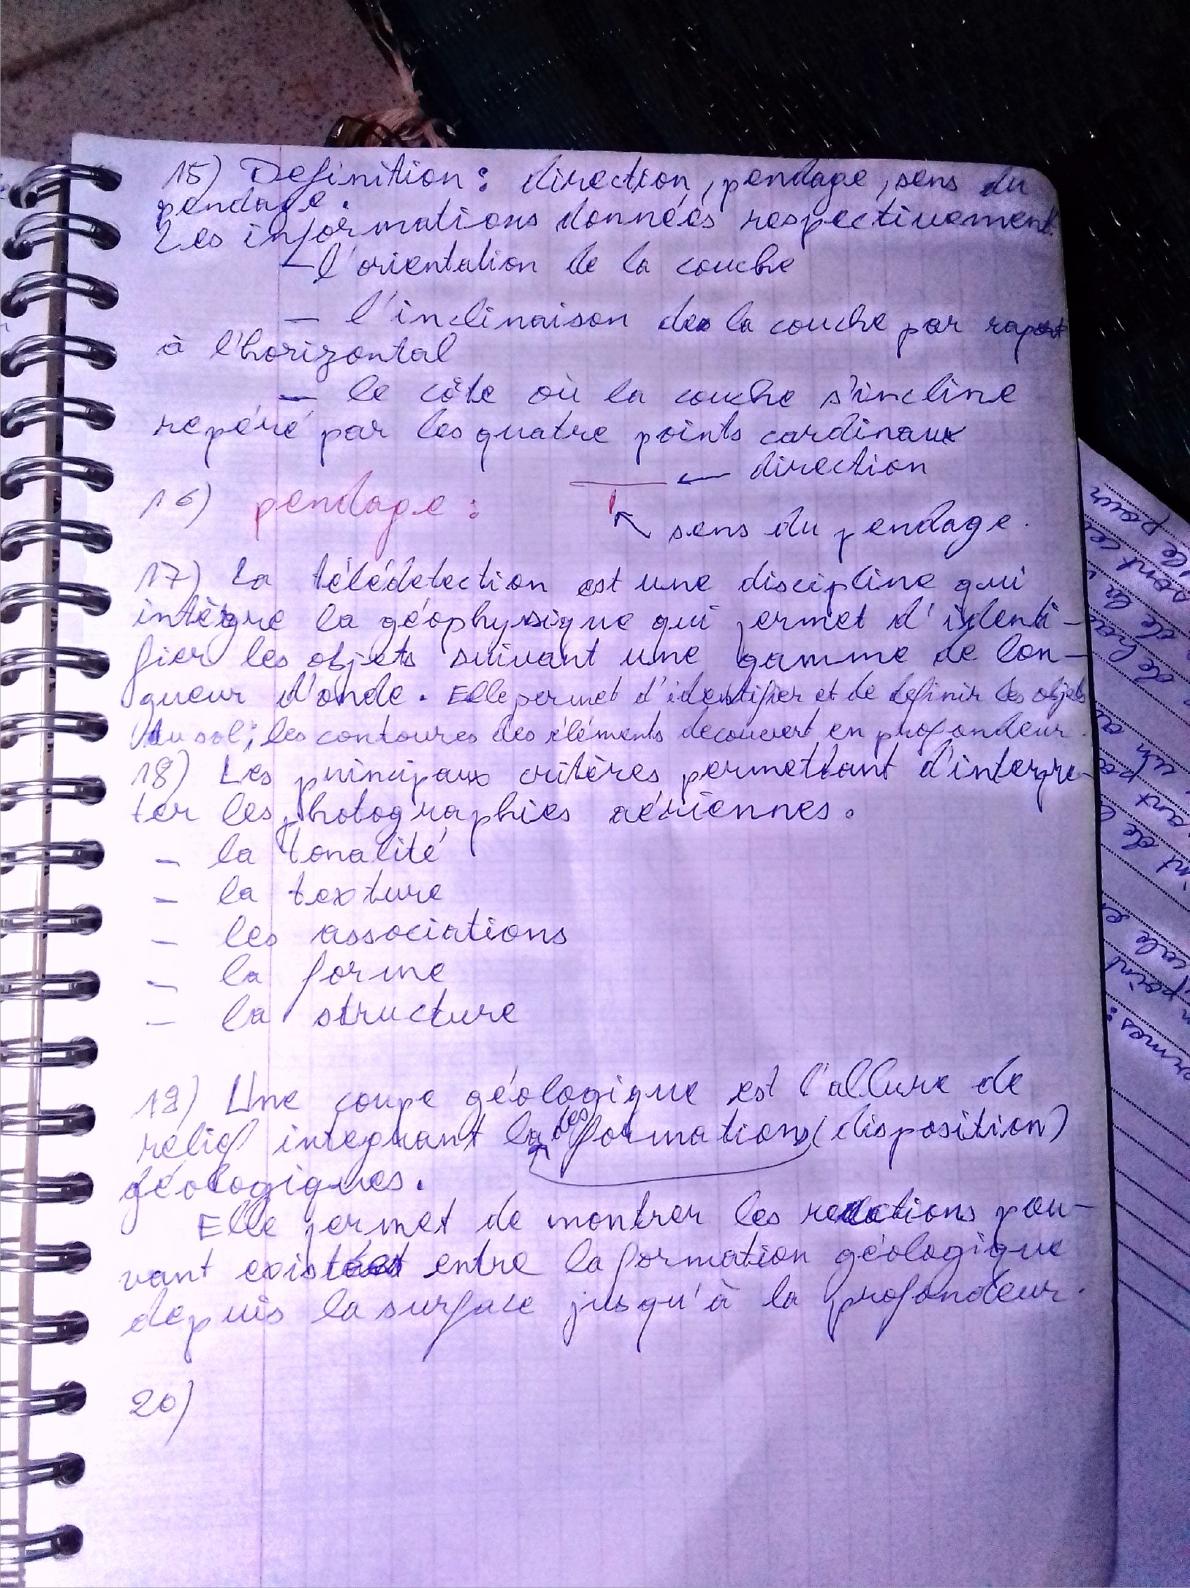 15) Definition : direction, pendage, sens du
pendage.
Les informations données respectivement.
- l'orientation de la couche
- l'inclinaison de la couche par raport
à l'horizontal
- le côte où la couche s'incline
repéré par les quatre points cardinaux
← direction
16) pendage :
sens du pendage.
17) La télédetection est une discipline qui
intègre la géophysique qui permet d'identi-
fier les objets suivant une gamme de lon-
gueur d'onde. Elle permet d'identifier et de definir les objets
du sol ; les contoures des éléments decouvert en profondeur.
18) Les principaux critères permettant d'interpre-
ter les photographies aériennes.
- la tonalité
- la texture
- les associations
- la forme
- la structure
19) Une coupe géologique est l'allure de
relief integrant la des formations (disposition)
géologiques.
Elle permet de montrer les relations pou-
vant exister entre la formation géologique
depuis la surface jusqu'à la profondeur.
20)